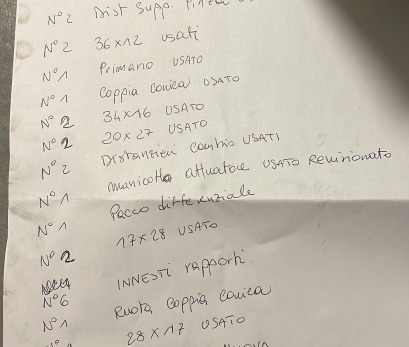 N°2 Dist Supp.
N°2 36x12 usati
N°1 Primario USATO
N°1 Coppia Conica USATO
N°2 34x16 USATO
N°2 20x27 USATO
N°2 Distanzieri Cambio USATI
N°1 manicotto attuatore USATO Revisionato
N°1 Pacco differenziale
N°2 17x28 USATO
N°6 INNESTI rapporti
N°1 Ruota Coppia Conica
28x17 USATO